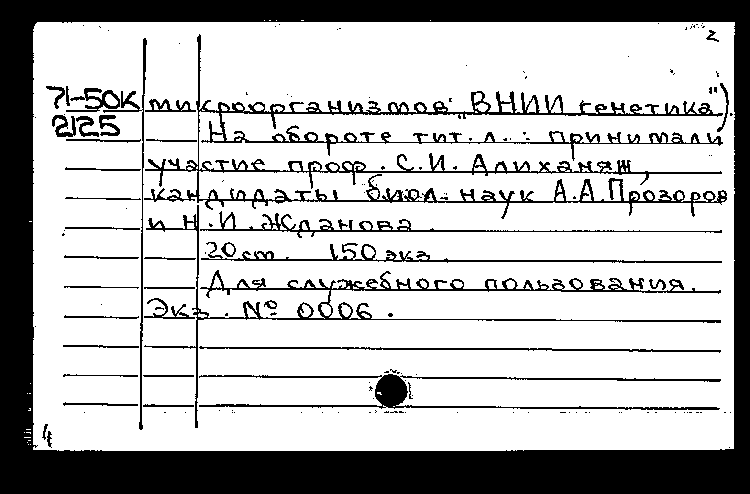 2
71-50К микроорганизмов "ВНИИ генетика")
2125 На обороте тит. л. : принимали
участие проф. С.И. Алиханян,
кандидаты биол. наук А.А.Прозоров
и Н.И. Жданова.
20 ст. 150 экз.
Для служебного пользования.
Экз. № 0006.
4